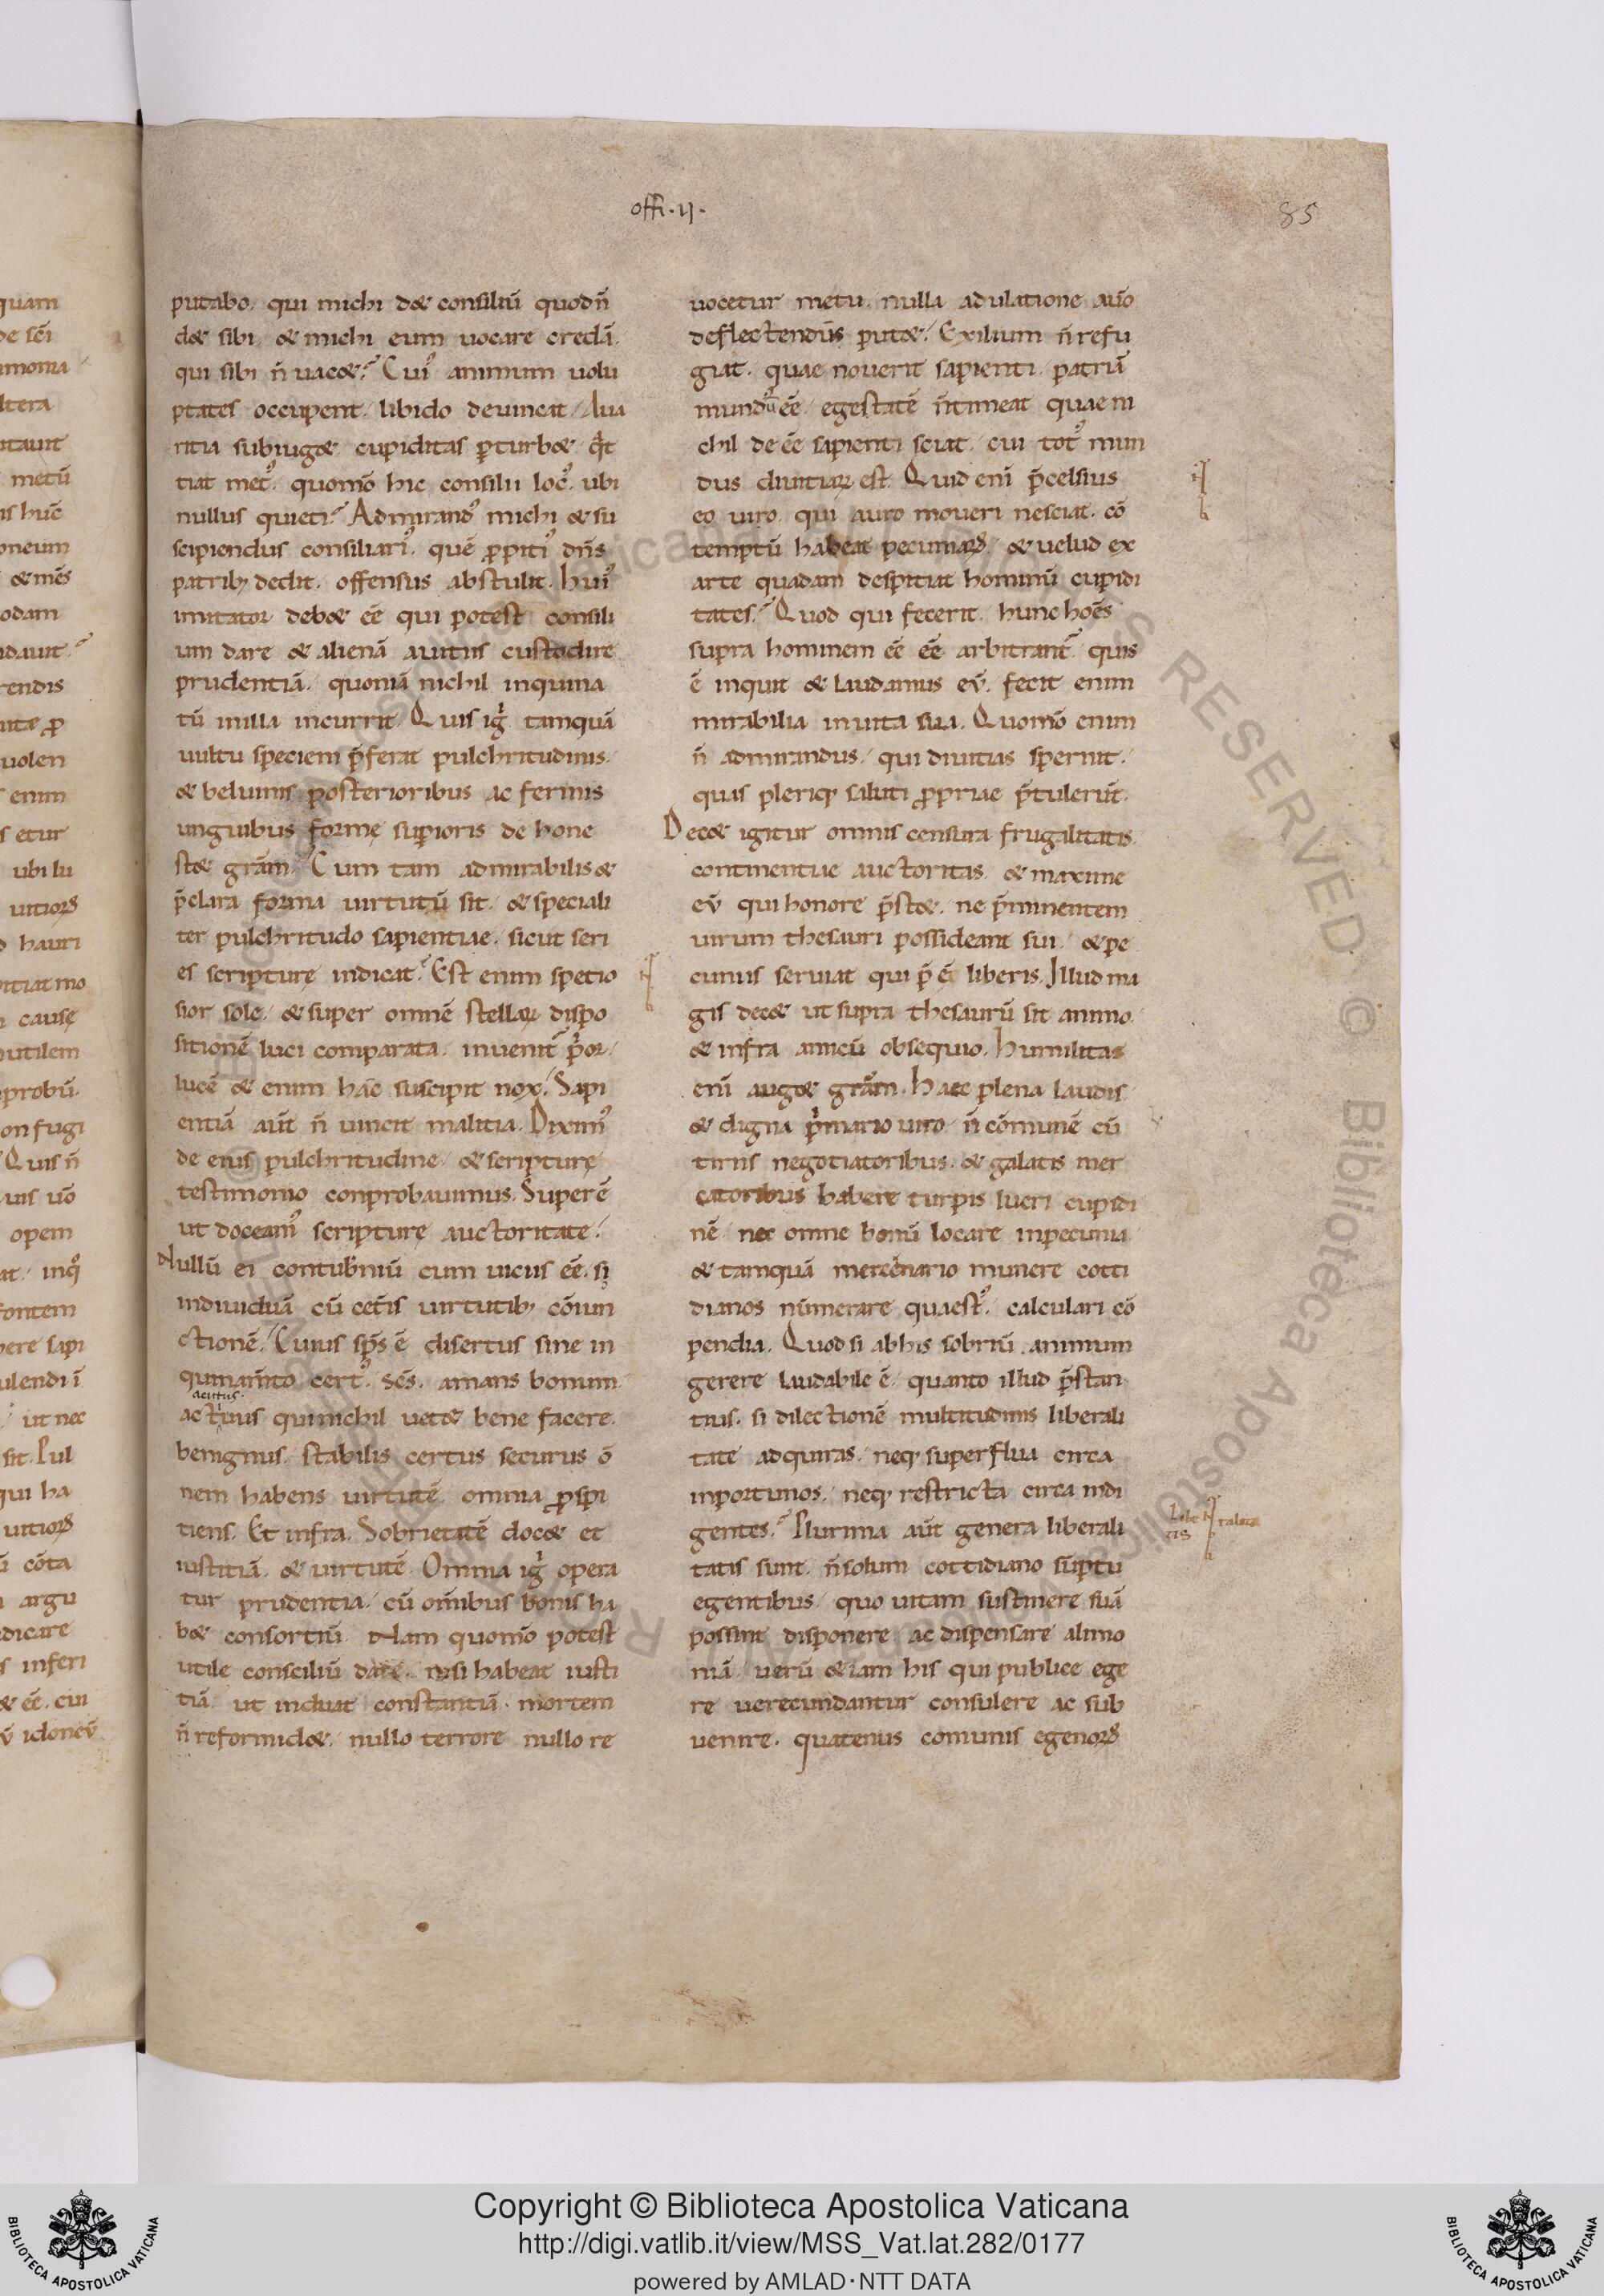 offi·ıı·
85
putabo. qui michi d& consiliū quod n̄
d& sibi. & michi eum uocare credā.
qui sibi n̄ uac&? Cui᾽ animum uolu
ptates occupent. libido deuincat. Aua
ritia subiug&. cupiditas p̱turb&. q̄t
tiat met᾽. quomō hic consilii loc᾽. ubi
nullus quieti? Admirand᾽ michi & su
scipiendus consiliari᾽. quē ꝓpiti᾽ dn̄s
patrib; dedit. offensus abstulit. hui᾽
imitator deb& ēē qui potest consili
um dare & alienā auitiis custodire
prudentiā. quoniā nichil inquina
tū in illa incurrit. Quis igr̄ tamquā
uultu speciem p̄ferat pulchritudinis.
& beluinis posterioribus ac ferinis
unguibus formę superioris de hone
st& grām. Cum tam admirabilis &
p̄clara forma uirtutū sit. & speciali
ter pulchritudo sapientiae. sicut seri
es scripturę indicat? Est enim spetio
sior sole. & super omnē stellaꝝ dispo
sitionē luci comparata. inuenit᷑ p̄or.
lucē & enim hāc suscipit nox. Sapi
entiā aūt n̄ uincit malitia. Diximᷣ
de eius pulchritudine. & scripturę
testimonio conprobauimus. Superē
ut doceam᾽ scripturę auctoritate.
Nullū ei contub̄niū cum uiciis ēē. si
indiuiduā cū cet̄is uirtutib; cōiun
ctionē. Cuius sp̄s ē disertus sine in
quinam̄to cert᾽. sc̄s. amans bonum
acutus.
actiuus qui nichil uet& bene facere.
benignus. stabilis certus securus ō
nem habens uirtutē. omnia ꝓspi
tiens. Et infra. Sobrietatē doc& et
iustitiā. & uirtutē. Omnia igr̄ opera
tur prudentia. cū om̄ibus bonis ha
b& consortiū. Nam quomō potest
utile consciliū dare. nisi habeat iusti
tiā. ut induat constantiā. mortem
n̄ reformid&. nullo terrore nullo re
uocetur metu. nulla adulatione auōo
deflectendū putet. Exilium n̄ refu
giat. quae nouerit sapienti patriā
mundū ēē. egestatē n̄ timeat quae ni
chil de ēē sapienti sciat. cui tot᾽ mun
dus diuitiaꝝ est. Quid enī p̄celsius
eo uiro. qui auro moueri nesciat. cō
temptū habeat pecuniaꝝ. & uelud ex
arte quadam despitiat hominū cupidi
tates? Quod qui fecerit. hunc hoēs
supra hominem ēē ēē arbitrant᷑. quis
ē inquit & laudamus eū. fecit enim
mirabilia in uita sua. Quomō enim
n̄ admirandus. qui diuitias spernit.
quas pleriq; saluti ꝓpriae p̄tulerūt.
Dec& igitur omnis censura frugalitatis.
continentiae auctoritas. & maxime
eū qui honore p̄st&. ne p̄minentem
uirum thesauri possideant sui. & pe
cuniis seruiat qui p̄ ē liberis. Illud ma
gis dec& ut supra thesaurū sit animo.
& infra amicū obsequio. Humilitas
enī aug& grām. Haec plena laudis
& digna p̄mario uiro. n̄ cōmunē cū
tiriis negotiatoribus. & galatis mer
catoribus habere turpis lucri cupidi
nē. nec omne bonū locare in pecunia
& tamquā mercenario munere cotti
dianos numerare quaest᾽. calculari cō
pendia. Quod si ab his sobriū animum
gerere laudabile ē. quanto illud p̄stan
tius. si dilectionē multitudinis liberali
tate adquiras. neq; superflua circa
inportunos. neq; restricta circa indi
gentes? Plurima aūt genera liberali
tatis sunt. n̄ solum cottidiano sūptu
egentibus. quo uitam sustinere suā
possint disponere. ac dispensare alimo
niā. uerū &iam his qui publice ege
re uerecundantur consulere ac sub
uenire. quatenus comunis egenoꝝ
Copyright © Biblioteca Apostolica Vaticana
http://digi.vatlib.it/view/MSS_Vat.lat.282/0177
powered by AMLAD·NTT DATA
BIBLIOTECA APOSTOLICA VATICANA
BIBLIOTECA APOSTOLICA VATICANA